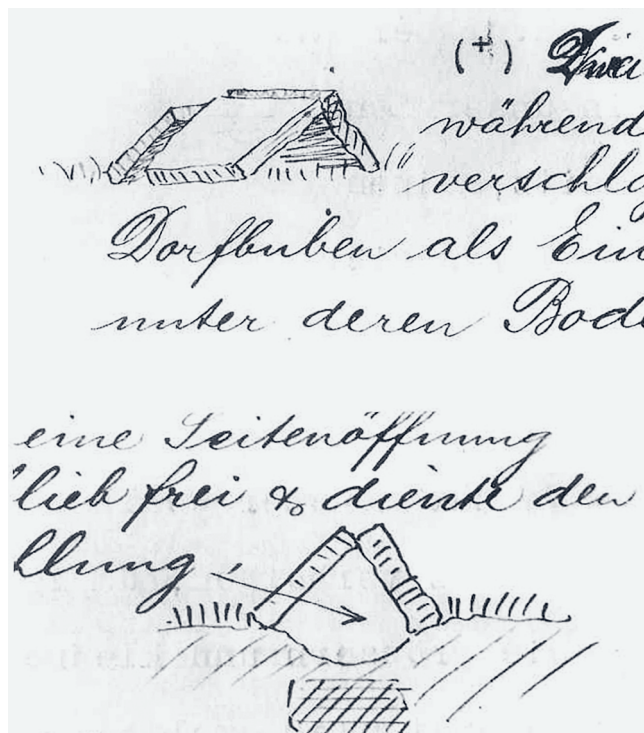 (+)
während
verschla
Dorfbuben als Ein
unter deren Bode
eine Seitenöffnung
lieb frei & diente den
hlung,